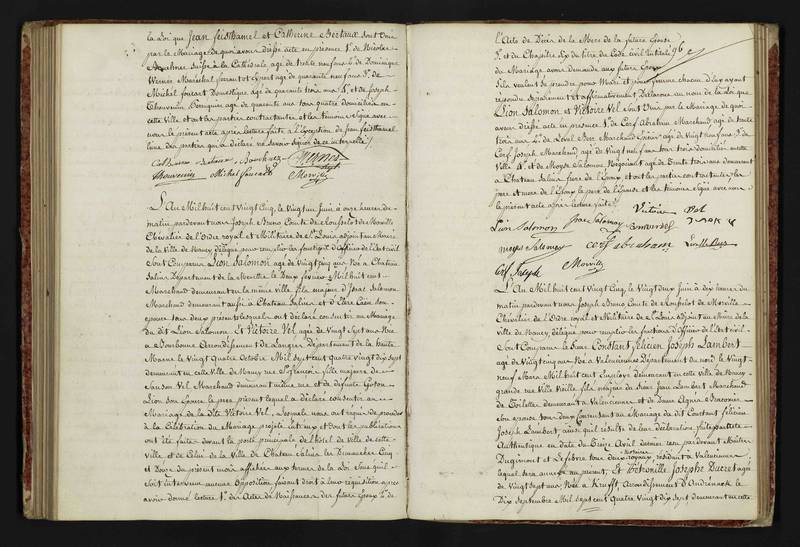 la Loi que Jean feisthamel et Catherine Bertaux sont Unis
par le Mariage de quoi avons dressé acte en présence 1°. de Nicolas
suisse à la Cathédrale, agé de trente neuf ans 2°. de Dominique
Werner Maréchal ferrant expert agé de quarante neuf ans 3°. de
Michel foucart Domestique agé de quarante trois ans 4°. et de Joseph
Thouvenin Perruquier agé de quarante six ans tous quatre domiciliés en
cette Ville et ont les parties contractantes et les témoins signé avec
nous le présent acte après lecture faite à l'Exception de Jean feisthamel
l'une des parties qui a déclaré ne savoir signer de ce interpellé
Catherine Bertaux Werner
Thouvenin Michel foucard Morville
L'An Mil huit cent Vingt Cinq, le Vingt un Juin à onze heures du
matin pardevant nous Joseph Bruno Comte de Rousselot de Morville
Chevalier de l'Ordre royal et Militaire de St. Louis adjoint au Maire
de la Ville de Nancy délégué pour remplir les fonctions d'officier de l'Etat civil
Sont Comparus Lion Salomon agé de Vingt cinq ans Né à Chateau
Salins Département de la Meurthe le Deux février Mil huit cent
Marchand demeurant en la même Ville fils majeur d'Isaac Salomon
Marchand demeurant aussi à Chateau Salins et d'Ester Caen son
épouse tous deux présens lesquels ont déclaré consentir au Mariage
du dit Lion Salomon. Et Victoire Vel agée de Vingt sept ans Née
à Bourbonne Arrondissement de Langres, Département de la haute
Marne le Vingt Quatre Octobre Mil sept cent quatre vingt dix sept
demeurant en cette Ville de Nancy rue St. fille majeure de
Sauson Vel Marchand demeurant même rue et de défunte Goton
Lion son épouse le père présent lequel a déclaré consentir au
Mariage de la dite Victoire Vel. Lesquels nous ont requis de procéder
à la Célébration du Mariage projeté entr'eux et dont les publications
ont été faites devant la porte principale de l'hôtel de Ville de cette
Ville et de Celui de la Ville de Chateau Salins les Dimanches Cinq
et Douze du présent mois affichées aux termes de la Loi sans qu'il
soit intervenu aucune Opposition faisant droit à leur réquisition après
avoir donné lecture 1°. des Actes de Naissances des futurs époux 2°. de
96
l'Acte de Décès de la Mère de la future épouse
3°. et du Chapitre Six du titre du Code Civil Intitulé
du Mariage avons demandé aux futurs époux
s'ils veulent se prendre pour Mari et pour femme chacun d'eux ayant
répondu séparément et affirmativement Déclarons au nom de la Loi que
Lion Salomon et Victoire Vel sont Unis par le Mariage de quoi
avons dressé acte en présence 1°. de Cerf Abraham Marchand agé de trente
trois ans 2°. de Marchand agé de Vingt neuf ans 3°. de
Cerf Joseph Marchand agé de Vingt neuf ans tous trois domiciliés en cette
Ville 4°. et de Moyse Salomon Négociant agé de Trente trois ans demeurant
à Chateau Salins frère de l'Epoux, et ont les parties contractantes les
père et mère de l'Epoux le père de l'Epouse et les témoins signé avec nous
le présent acte après lecture faite
Victoire Vel
Lion Salomon Isac Salomon
moyse Salomon cerf abraham
Cerf Joseph Morville
L'An Mil huit cent Vingt Cinq, le Vingt deux Juin à dix heures du
matin pardevant nous Joseph Bruno, Comte de Rousselot de Morville
Chevalier de l'Ordre royal et Militaire de St. Louis adjoint au Maire de la
Ville de Nancy, délégué pour remplir les fonctions d'Officier de l'Etat civil
Sont Comparus le Sieur Constant félicien Joseph Lambert
agé de Vingt cinq ans Né à Valenciennes Département du nord le Vingt
neuf Mars Mil huit cent Employé demeurant en cette ville de Nancy
grande rue Ville Vieille fils majeur du Sieur Jean Lambert Marchand
de Toilettes demeurant à Valenciennes et de Dame Agnès
son épouse tous deux Consentant au Mariage du dit Constant félicien
Joseph Lambert, ainsi qu'il résulte de leur déclaration
Authentique en date du Treize Avril dernier reçu pardevant Maître
Duginiout et Lefebvre tous deux notaires royaux résidant à Valenciennes
lequel sera annexé au présent, Et Pétronille Josephe Ducret agée
de Vingt sept ans Née à Kruyft, Arrondissement d'Andernack le
Dix septembre Mil sept cent Quatre Vingt dix sept demeurant en cette